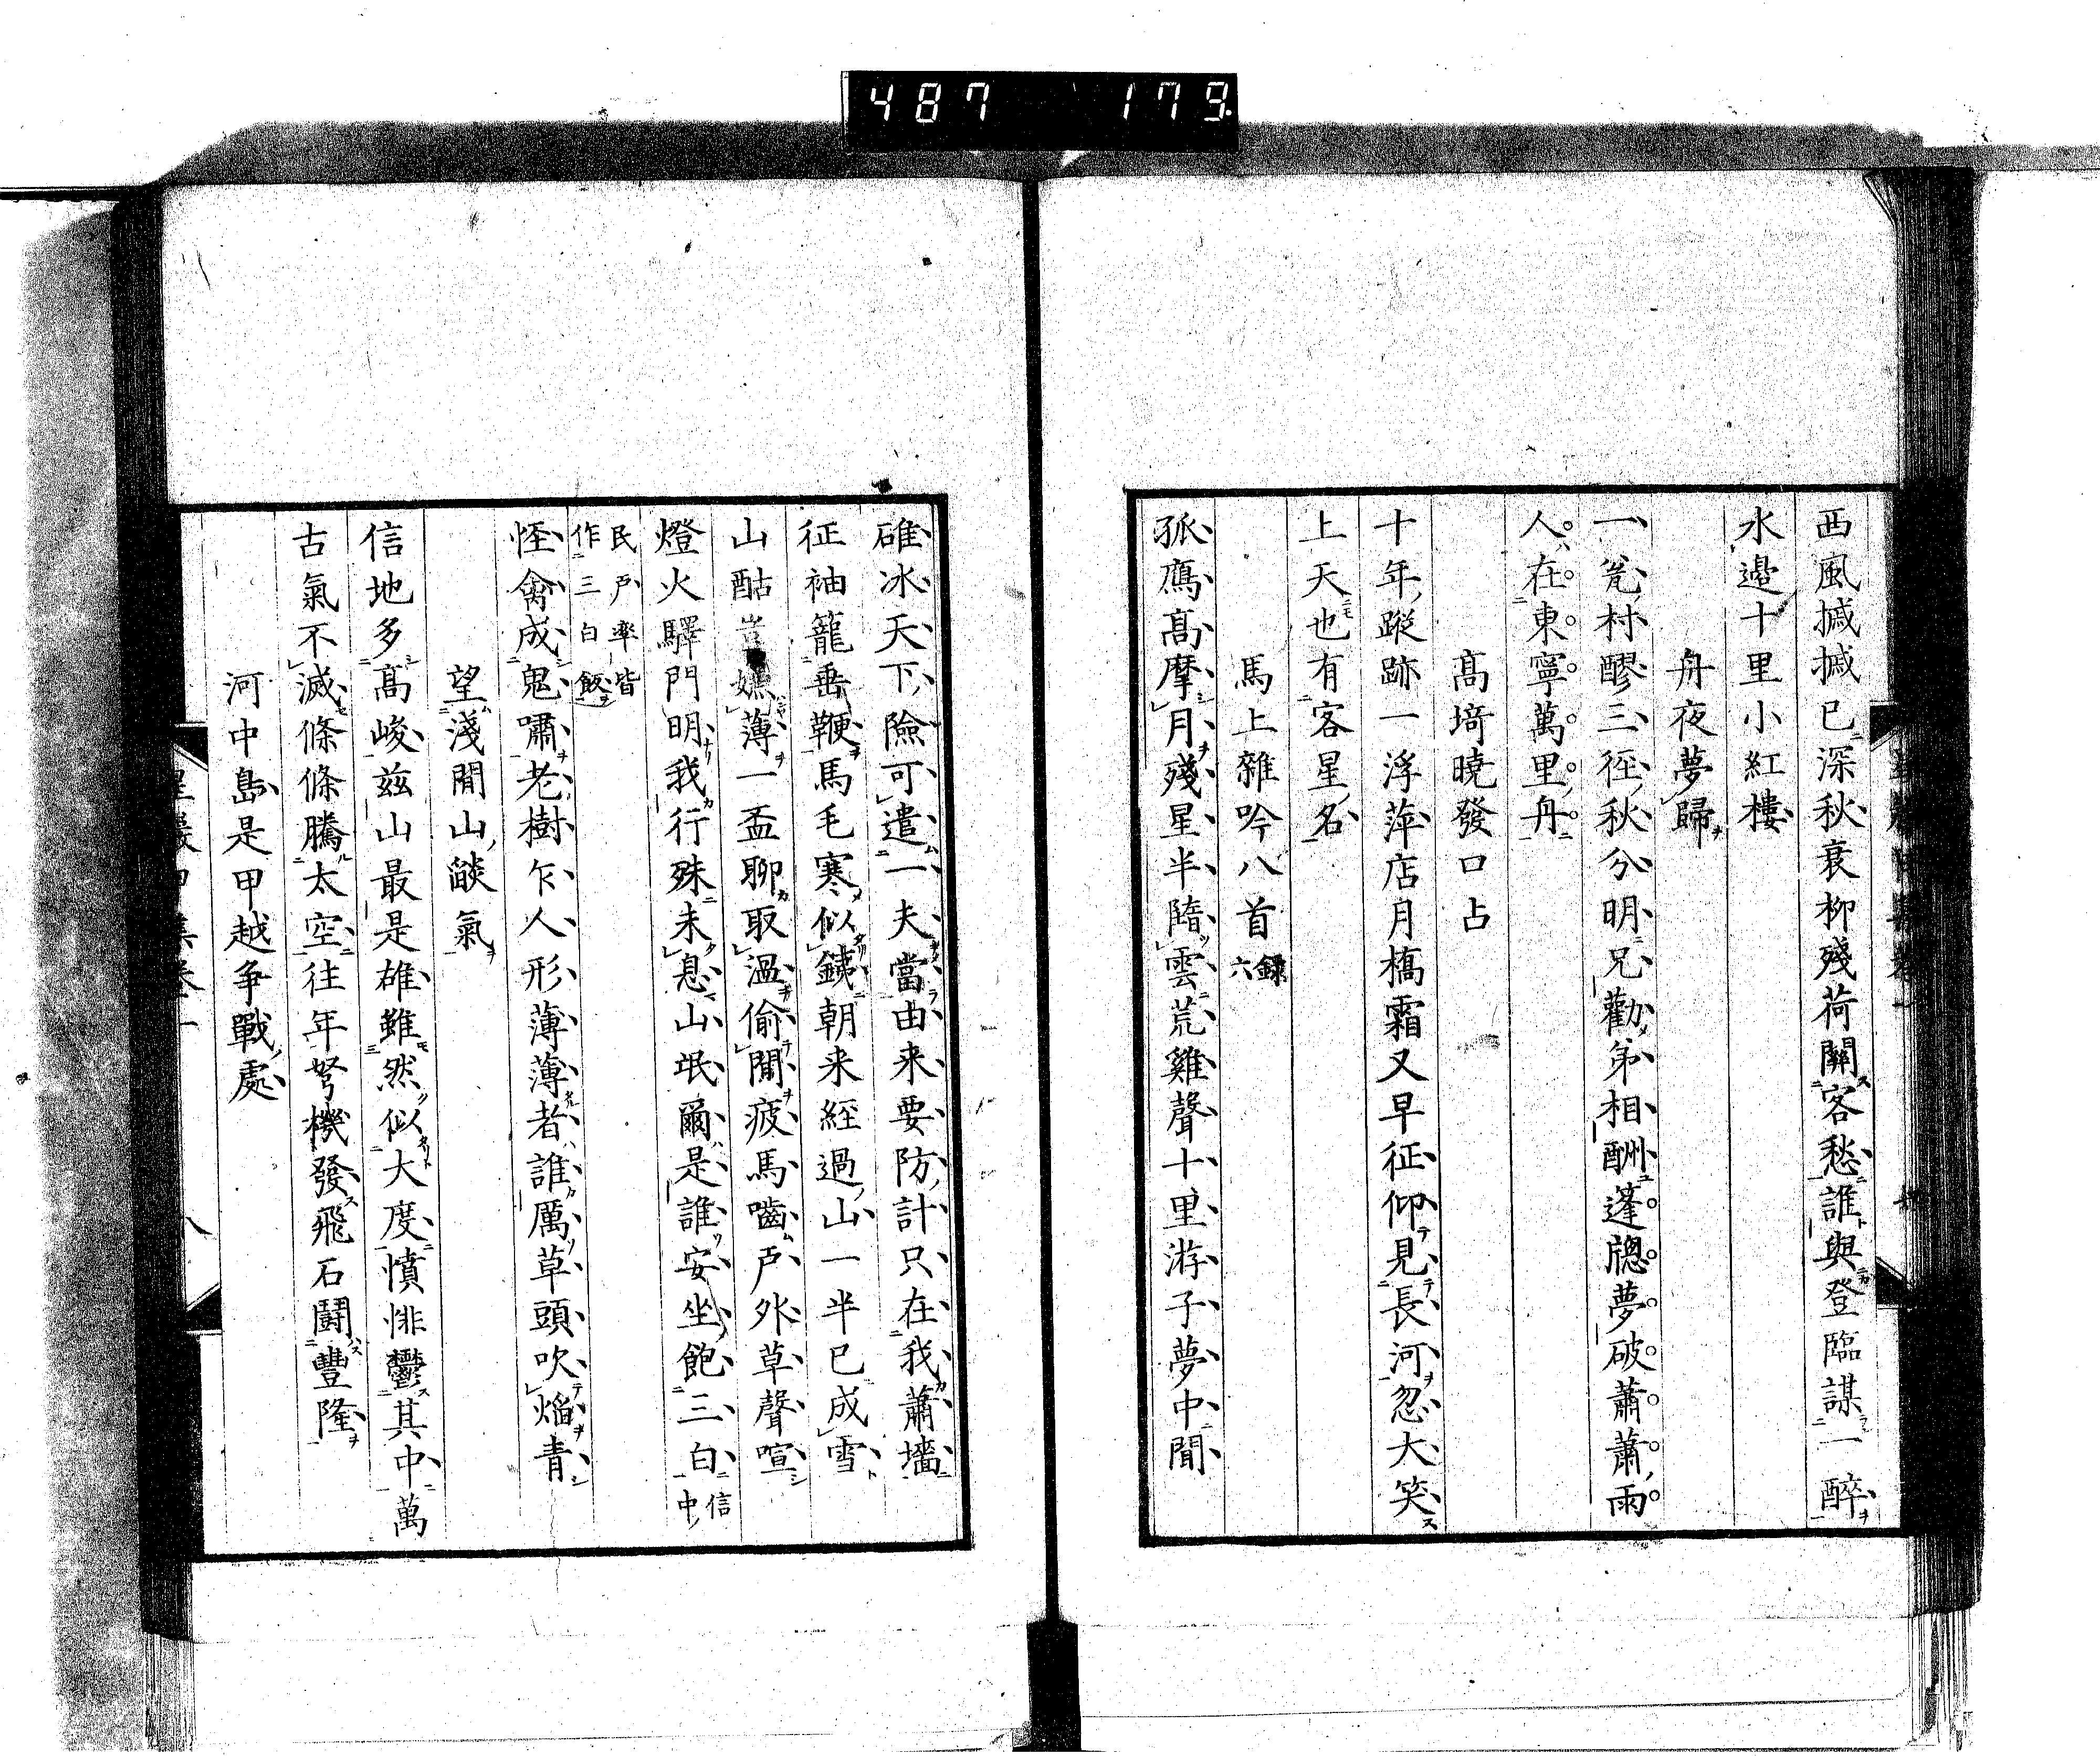 487 179
西風摵摵已深秋衰柳殘荷關客愁誰與登臨謀一醉
水邊十里小紅樓
舟夜夢歸
一瓮村醪三徑秋分明兄勸弟相酬蓬牕夢破蕭蕭雨
人在東寧萬里舟
髙埼曉發口占
十年蹤跡一浮萍店月橋霜又早征仰見長河忽大笑
上天也有客星名
馬上雜吟八首
錄
六
孤鴈髙摩月殘星半隨雲荒雞聲十里游子夢中聞
碓冰天下險可遣一夫當由来要防計只在我蕭墻
征袖籠垂鞭馬毛寒似鐵朝来経過山一半已成雪
山酤嫌薄一盃聊取温偷閒疲馬嚙戸外草聲喧
燈火驛門明我行殊未息山氓爾是誰安坐飽三白
信
中
民戸率皆
作三白飯
怪禽成鬼嘯老樹乍人形薄薄者誰厲草頭吹焔青
望淺間山燄氣
信地多髙峻茲山最是雄雖然似大度憤悱鬱其中萬
古氣不滅條條騰太空往年弩機發飛石鬪豐隆
河中島是甲越争戰處
八